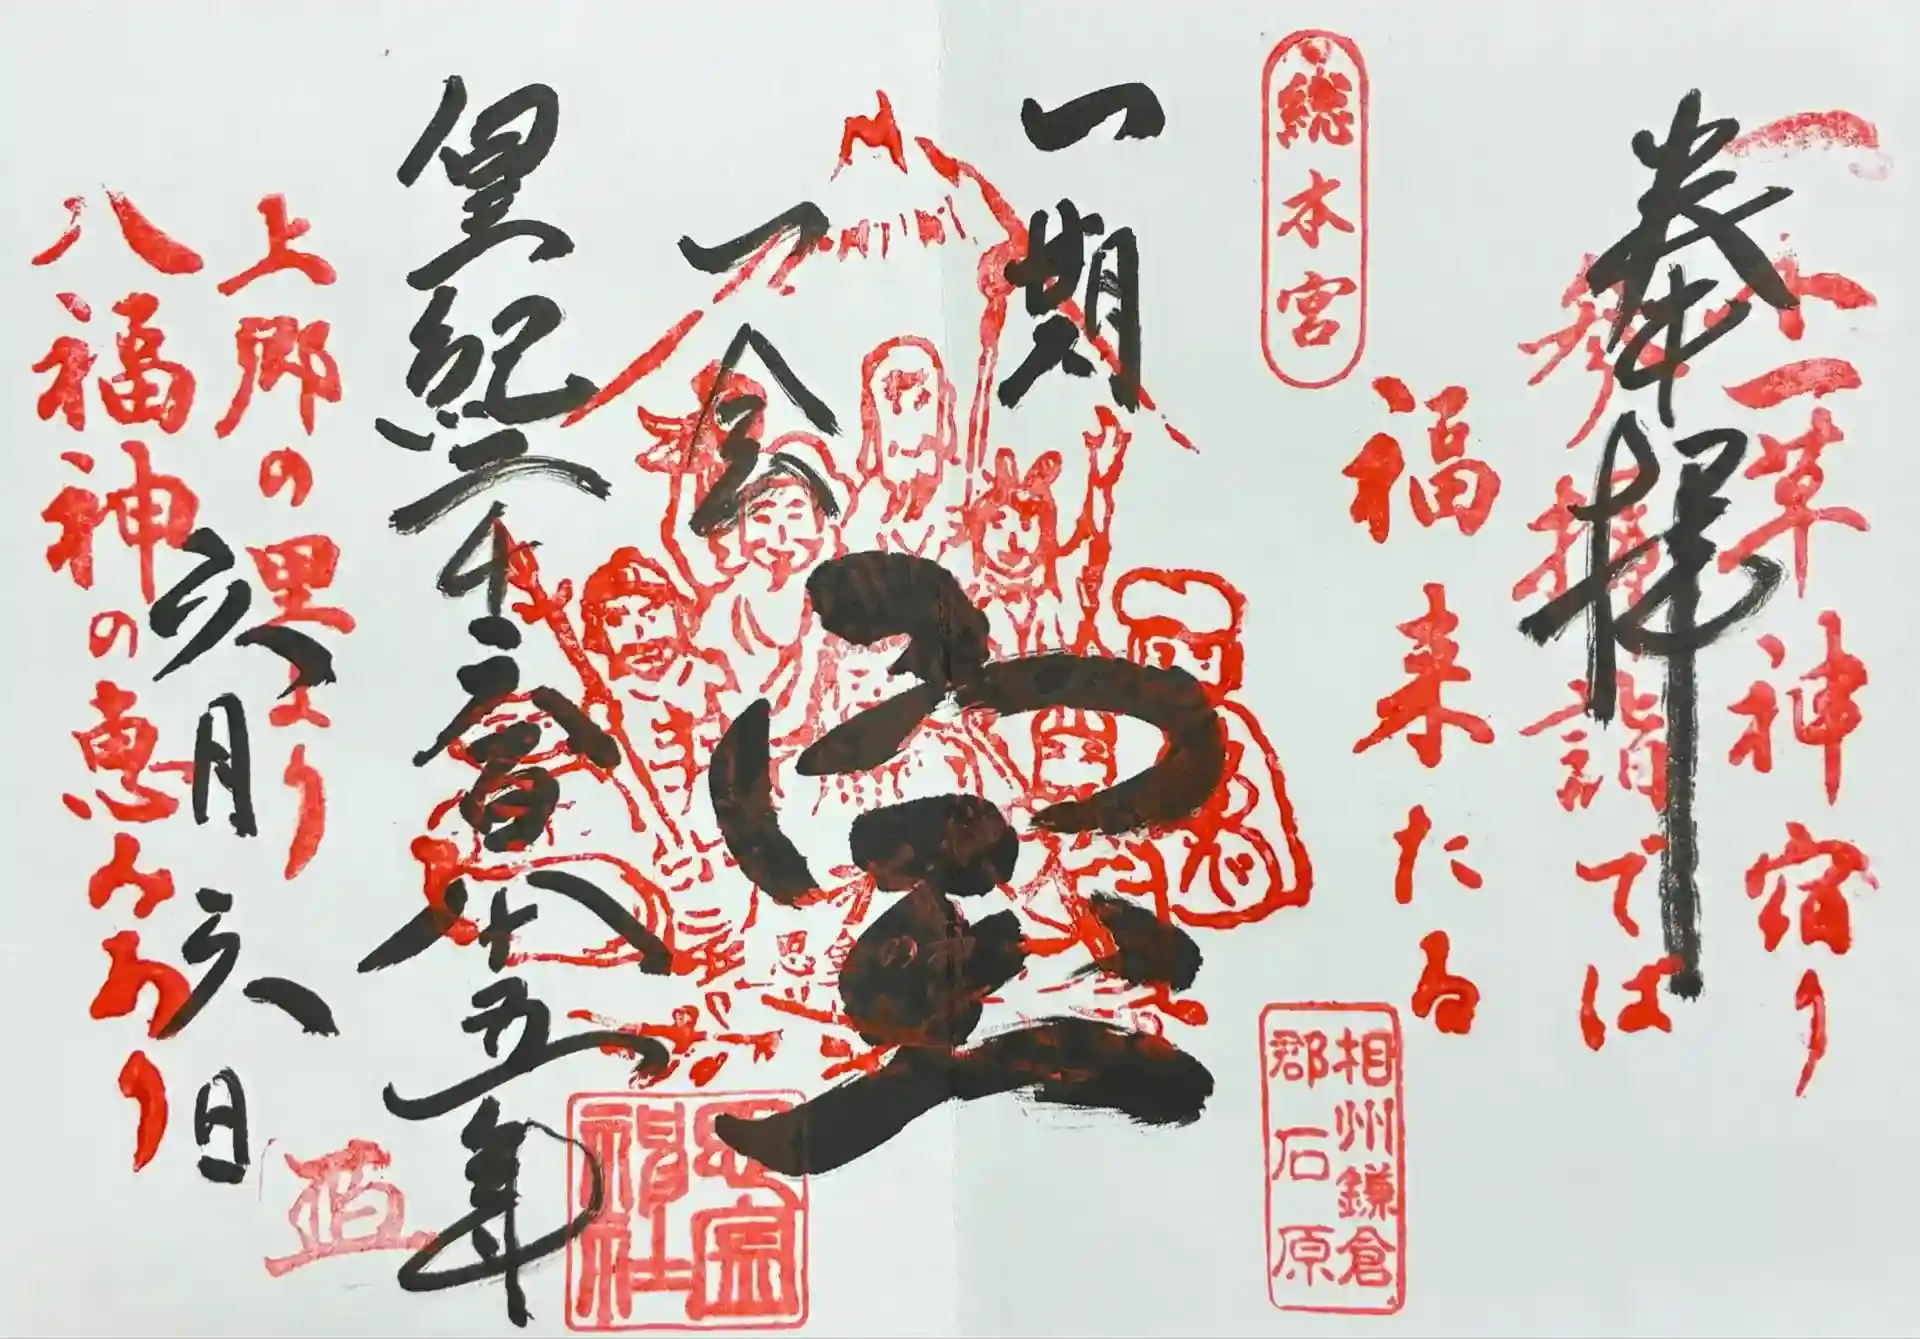 奉拝
一木一草神宿り
参拝詣では
総本宮
福来たる
相州鎌倉
郡石原
一期
一会
宝
思金
神社
皇紀二千六百八十五年
上郷の里より
六月六日
八福神の恵みあり